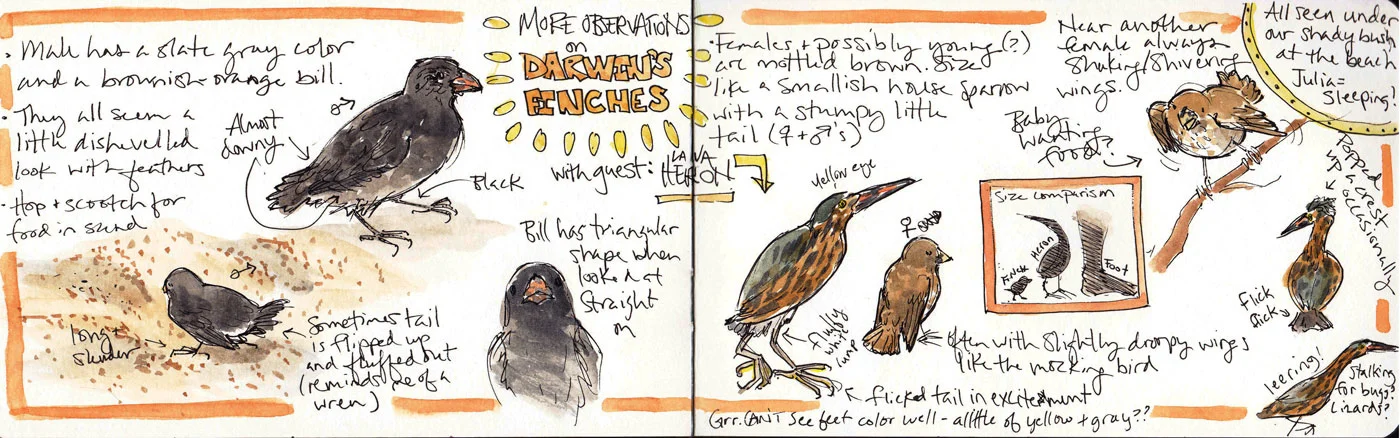 • Male has a slate gray color
and a brownish-orange bill.
• They all seem a
little dishevelled
look with feathers
• Hop + scootch for
food in sand
Almost
downy
Black
long +
slender
Sometimes tail
is flipped up
and fluffed out
(reminds me of a
wren)
MORE OBSERVATIONS
on
DARWIN'S
FINCHES
with guest: LAVA
HERON
Bill has triangular
shape when
looked at
straight
on
• Females + possibly young (?)
are mottled brown. Size
like a smallish house sparrow
with a stumpy little
tail (♀+♂'s)
Near another
female always
shaking/shivering
wings.
Baby
wanting
food?
All seen under
our shady bush
at the beach
Julia =
sleeping!
yellow eye
♀
Size comparism
Finch
Heron
Foot
Popped
up a crest
occasionally
flick
flick
fluffy
white
rump
often with slightly droopy wings
like the mocking bird
flicked tail in excitement
Grr. CAN'T see feet color well - a little of yellow + gray??
leering!
Stalking
for bugs?
Lizards?